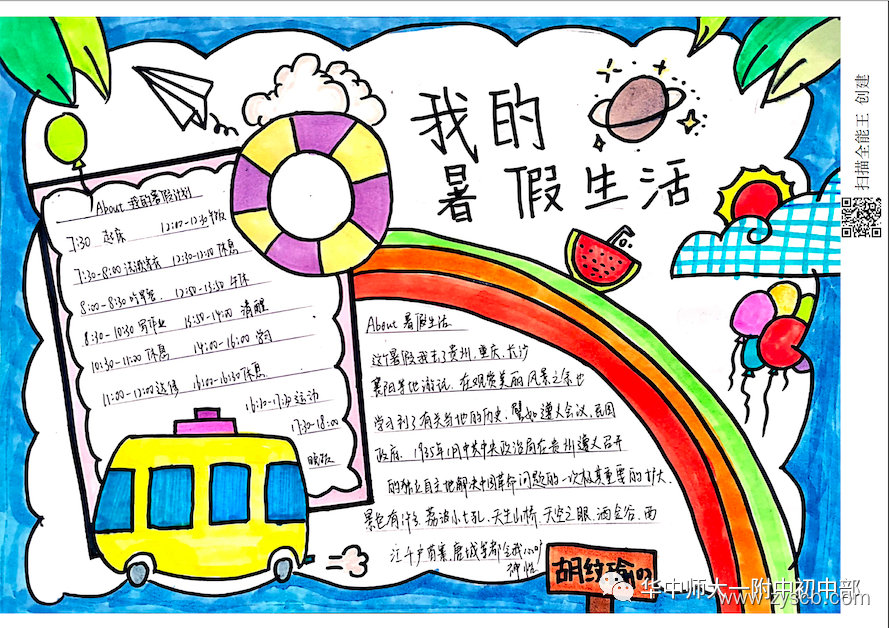 我的
暑假生活
About 我的暑假计划
7:30 起床 12:00-12:30午饭
7:30-8:00 12:30-13:00 休息
8:00-8:30吃早餐. 13:30-13:50 午休
8:30-10:30 写作业 13:50-14:00 清醒
10:30-11:00 休息 14:00-16:00 学习
11:00-12:00 16:00-16:30休息
16:30-17:30运动
17:30-18:00
晚饭
About 暑假生活
这个暑假我去了贵州、重庆、长沙
襄阳等地游玩. 在观赏美丽风景之余也
学习到了有关各地的历史. 譬如遵义会议、民国
政府. 1935年1月中共中央政治局在贵州遵义召开
的独立自主地解决中国革命问题的一次极其重要的扩大.
景色有 荔波小七孔、天生山桥、天空之眼、洒金谷、西
江千户苗寨、唐城等都令我心旷
神怡
胡纹瑜的
扫描全能王 创建
华中师大一附中初中部
www.zyscb.com